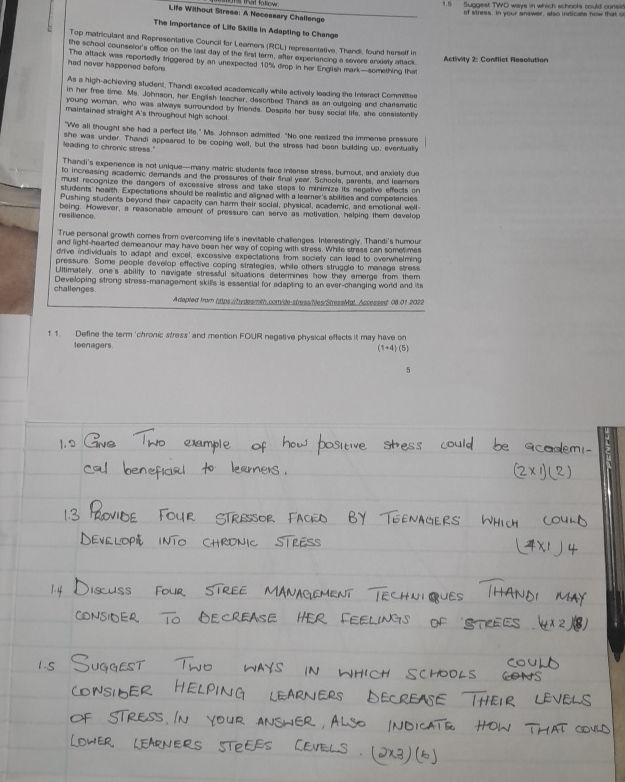 that follow:
Life Without Stress: A Necessary Challenge
The Importance of Life Skills in Adapting to Change
Top matriculant and Representative Council for Learners (RCL) representative, Thandi, found herself in
the school counselor's office on the last day of the first term, after experiencing a severe anxiety attack.
The attack was reportedly triggered by an unexpected 10% drop in her English mark—something that
had never happened before.
As a high-achieving student, Thandi excelled academically while actively leading the Interact Committee
in her free time. Ms. Johnson, her English teacher, described Thandi as an outgoing and charismatic
young woman, who was always surrounded by friends. Despite her busy social life, she consistently
maintained straight A's throughout high school.
"We all thought she had a perfect life," Ms. Johnson admitted. "No one realized the immense pressure
she was under. Thandi appeared to be coping well, but the stress had been building up, eventually
leading to chronic stress."
Thandi's experience is not unique—many matric students face intense stress, burnout, and anxiety due
to increasing academic demands and the pressures of their final year. Schools, parents, and learners
must recognize the dangers of excessive stress and take steps to minimize its negative effects on
students' health. Expectations should be realistic and aligned with a learner's abilities and competencies.
Pushing students beyond their capacity can harm their social, physical, academic, and emotional well-
being. However, a reasonable amount of pressure can serve as motivation, helping them develop
resilience.
True personal growth comes from overcoming life's inevitable challenges. Interestingly, Thandi's humour
and light-hearted demeanour may have been her way of coping with stress. While stress can sometimes
drive individuals to adapt and excel, excessive expectations from society can lead to overwhelming
pressure. Some people develop effective coping strategies, while others struggle to manage stress.
Ultimately, one's ability to navigate stressful situations determines how they emerge from them.
Developing strong stress-management skills is essential for adapting to an ever-changing world and its
challenges.
Adapted from Accessed: 08.01.2022
1.1. Define the term 'chronic stress' and mention FOUR negative physical effects it may have on
teenagers. (1+4) (5)
5
1.5 Suggest TWO ways in which schools could
of stress. In your answer, also indicate how that
Activity 2: Conflict Resolution
1.2 Give Two example of how positive stress could be academi-
cal beneficial to learners. (2x1)(2)
1.3 PROVIDE FOUR STRESSOR FACED BY TEENAGERS WHICH COULD
DEVELOP INTO CHRONIC STRESS (4x1)4
1.4 DISCUSS FOUR STREE MANAGEMENT TECHNIQUES THANDI MAY
CONSIDER TO DECREASE HER FEELINGS OF STREES. (4x2)(8)
1.5 SUGGEST TWO WAYS IN WHICH SCHOOLS COULD
CONSIDER HELPING LEARNERS DECREASE THEIR LEVELS
OF STRESS. IN YOUR ANSWER, ALSO INDICATE HOW THAT COULD
LOWER LEARNERS STREES LEVELS. (2x3)(6)